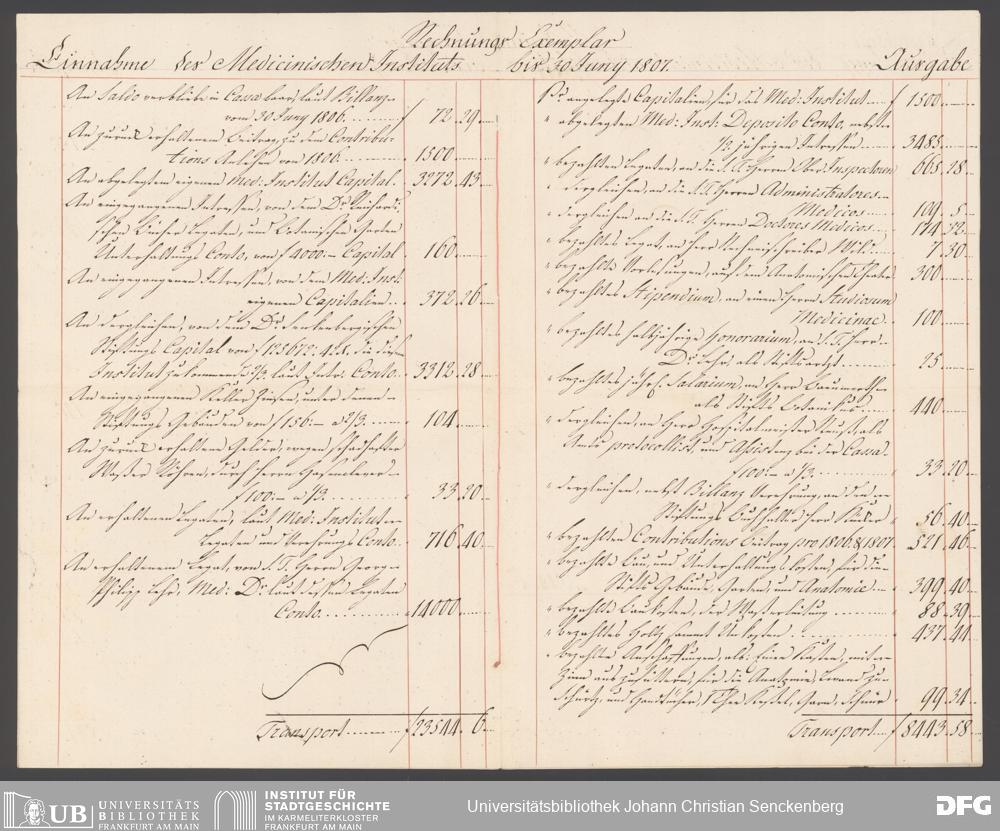 Rechnungs Exemplar
Einnahme des Medicinischen Instituts bis 30 Juny 1807. Ausgabe
An Saldo verbliebe in Cassa baar, laut Billanz
vom 30 Juny 1806. f 72. 29.
An zurück erhaltenem Beitrag, zu dem Contribu-
tions Anlehen von 1806. 1500
An abgelegtem eigenen Med: Institut Capital. 3272. 43.
An eingegangenen Intressen, von dem Dr
schen Bücher Legaten, und Botanischen Garten
Unterhaltungs Conto, von f 4000.— Capital 160
An eingegangenen Intressen, von dem Med: Inst:
eigenen Capitalien 372. 26.
An dergleichen, von dem Dr Senckenbergischen
Stiftungs Capital von f 125672. die dem
Institut zukommende 2/3. laut Intr: Conto. 3312. 28.
An eingegangenen Keller Zinsen, unter denen
Stiftungs Gebäuden von f 156.— a 2/3. 104
An zurück erhaltene Gelder, wegen schadhafter
Wasser Röhren, durch Herrn
f 100.— a 1/3. 33. 20.
An erhaltenen Legaten, laut Med: Institut
Legaten und Conto. 716. 40.
An erhaltenem Legat, von S. T. Herrn Georg
Philipp Lehr, Med: Dr laut dessen Legaten
Conto. 14000
Transport f 23544. 6.
Pr angelegte Capitalien, für das Med: Institut f 1500
" abgelegten Med: Inst: Deposito Conto, nebst
1/2 jährigen Intressen 3485
" bezahlten Legaten, an die S. T. Herren Ober Inspectoren 665. 18.
" dergleichen, an die S. T. Herren Administratores
Medicos 109. 5
" dergleichen an die S. T. Herren Doctores Medicos 174. 32
" bezahltes Legat, an Herr Rechneischreiber 7. 30
" bezahlte Vorlesungen, auf dem Anatomischen Theater 300
" bezahltes Stipendium, an einen Herrn Studiosum
Medicinae 100
" bezahltes halbjährige Honorarium, an S. T. Herr
Dr Lehr, als Stiftsarzt 25
" bezahltes jährl. Salarium, an Herr
als Stifts Botanikus 440
" dergleichen, an Herr Hospitalmeister als
Amts protocollist, und Assistenz bei der Cassa
f 100.— a 1/3. 33. 20
" dergleichen, nebst Billanz Verehrung, an den
Stiftungs Buchhalter Herr 56. 40
" bezahlten Contributions beitrag pro 1806. & 1807 521. 46
" bezahlte Bau, und Unterhaltungs kosten, für die
Stifts Gebäude, Garten, und Anatomie 399. 40
" bezahlte Baukosten, der Wasserleitung 88. 39
" bezahltes Holz, sammt Unkosten 437. 44
" bezahlte Anschaffungen, als: Einen Kasten, mit
Zinn auszufüttern, für die Anatomie,
Schürz, und Handtücher, Kessel, Garn, 99. 34
Transport f 8443. 58
UB UNIVERSITÄTS
BIBLIOTHEK
FRANKFURT AM MAIN
INSTITUT FÜR
STADTGESCHICHTE
IM KARMELITERKLOSTER
FRANKFURT AM MAIN
Universitätsbibliothek Johann Christian Senckenberg
DFG